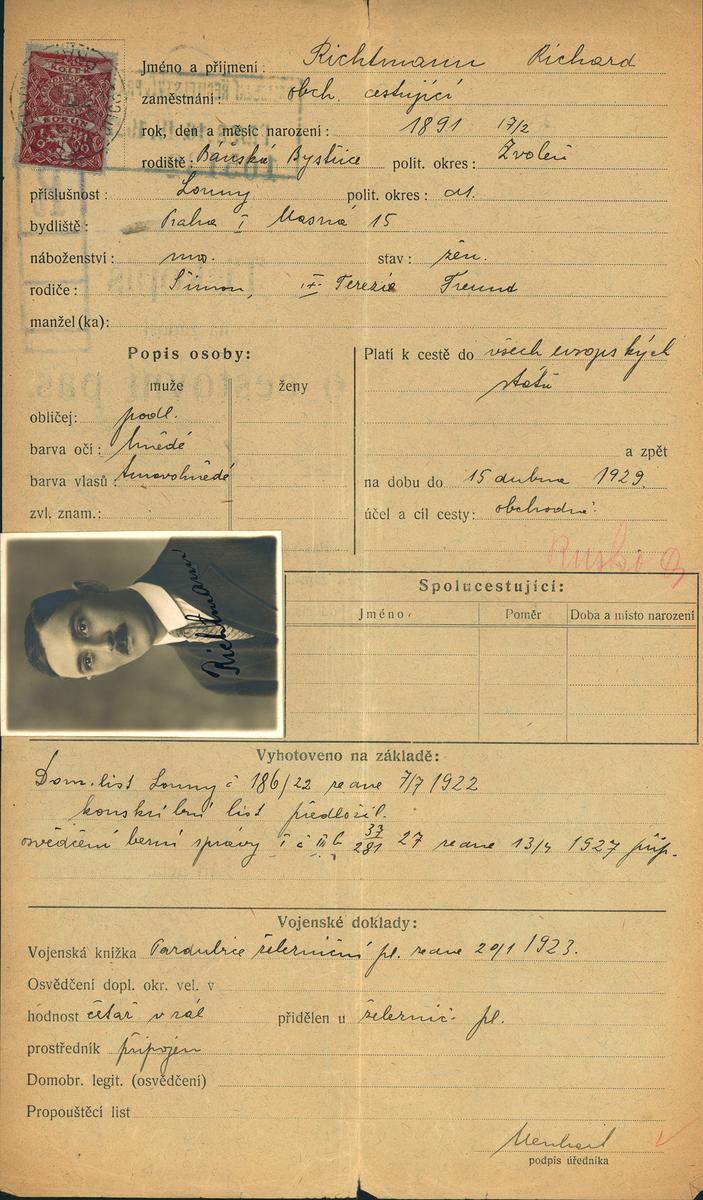 KOLEK
5
KORUN
Jméno a přijmení: Richtmann Richard
zaměstnání: obch. cestující
rok, den a měsíc narození: 1891 17/2
rodiště: Báňská Bystrice polit. okres: Zvoleň
příslušnost: Louny polit. okres: dt.
bydliště: Praha I Masná 15
náboženství: mo. stav: žen.
rodiče: Šimon, Terezie Freund
manžel (ka):
Popis osoby:
muže ženy
obličej: podl.
barva očí: hnědé
barva vlasů: tmavohnědé
zvl. znam.:
Platí k cestě do všech evropských
států
a zpět
na dobu do 15 dubna 1929.
účel a cíl cesty: obchodní
Rusko
Richtmann
Spolucestující:
Jméno Poměr Doba a místo narození
Vyhotoveno na základě:
Dom. list Louny č 186/22 ze dne 7/7 1922
konskribční list předložil.
osvědčení berní správy I č III b 37/281 27 ze dne 13/4 1927 přip.
Vojenské doklady:
Vojenská knížka Pardubice železniční pl. ze dne 20/1 1923.
Osvědčení dopl. okr. vel. v
hodnost četař v zál přidělen u železnič. pl.
prostředník připojen
Domobr. legit. (osvědčení)
Propouštěcí list
podpis úředníka